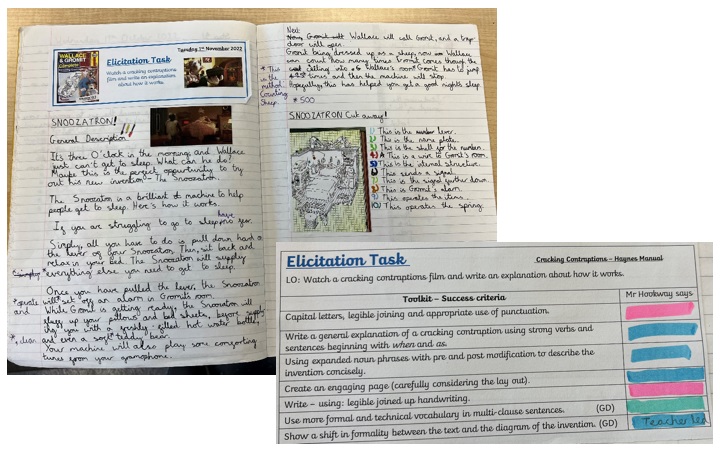 WALLACE & GROMIT
Elicitation Task
Tuesday 1st November 2022
Watch a cracking contraptions
film and write an explanation
about how it works.
SNOOZATRON!
General Description
It's three O'clock in the morning and Wallace
just can't get to sleep. What can he do?
Maybe this is the perfect opportunity to try
out his new invention - The Snoozatron.
The Snoozatron is a brilliant machine to help
people get to sleep. Here's how it works.
If you are struggling to go to sleep
Simply, all you have to do is pull down hard on
the lever of your Snoozatron. Then, sit back and
relax in your bed. The Snoozatron will supply
*simply *everything else you need to get to sleep.
Once you have pulled the lever, the Snoozatron
will set off an alarm in Gromit's room.
While Gromit is getting ready, the Snoozatron will
your pillows and bed sheets, before
you with a freshly filled hot water bottle,
and even a soft teddy bear.
Your machine will also play some comforting
tunes from your gramophone.
Next
Wallace will call Gromit, and a trap
door will open.
Gromit being dressed up as a sheep, now Wallace
can count how many times Gromit comes through the
Wallace's room. Gromit has to jump
times and then the machine will stop.
Hopefully, this has helped you get a good night's sleep.
* This
is the
method
Counting
Sheep.
* 500
SNOOZATRON Cut away!
This is the lever.
This is the name plate.
This is the shelf for the
This is a wire to Gromit's room.
This is the internal structure.
This sends a signal.
This is the signal further down.
This is Gromit's alarm.
This operates the items.
This operates the spring.
Elicitation Task
Cracking Contraptions – Haynes Manual
LO: Watch a cracking contraptions film and write an explanation about how it works.
Toolkit – Success criteria
Mr Hookway says
Capital letters, legible joining and appropriate use of punctuation.
Write a general explanation of a cracking contraption using strong verbs and
sentences beginning with when and as.
Using expanded noun phrases with pre and post modification to describe the
invention concisely.
Create an engaging page (carefully considering the lay out).
Write – using: legible joined up handwriting.
Use more formal and technical vocabulary in multi-clause sentences. (GD)
Show a shift in formality between the text and the diagram of the invention. (GD)
Teacher led